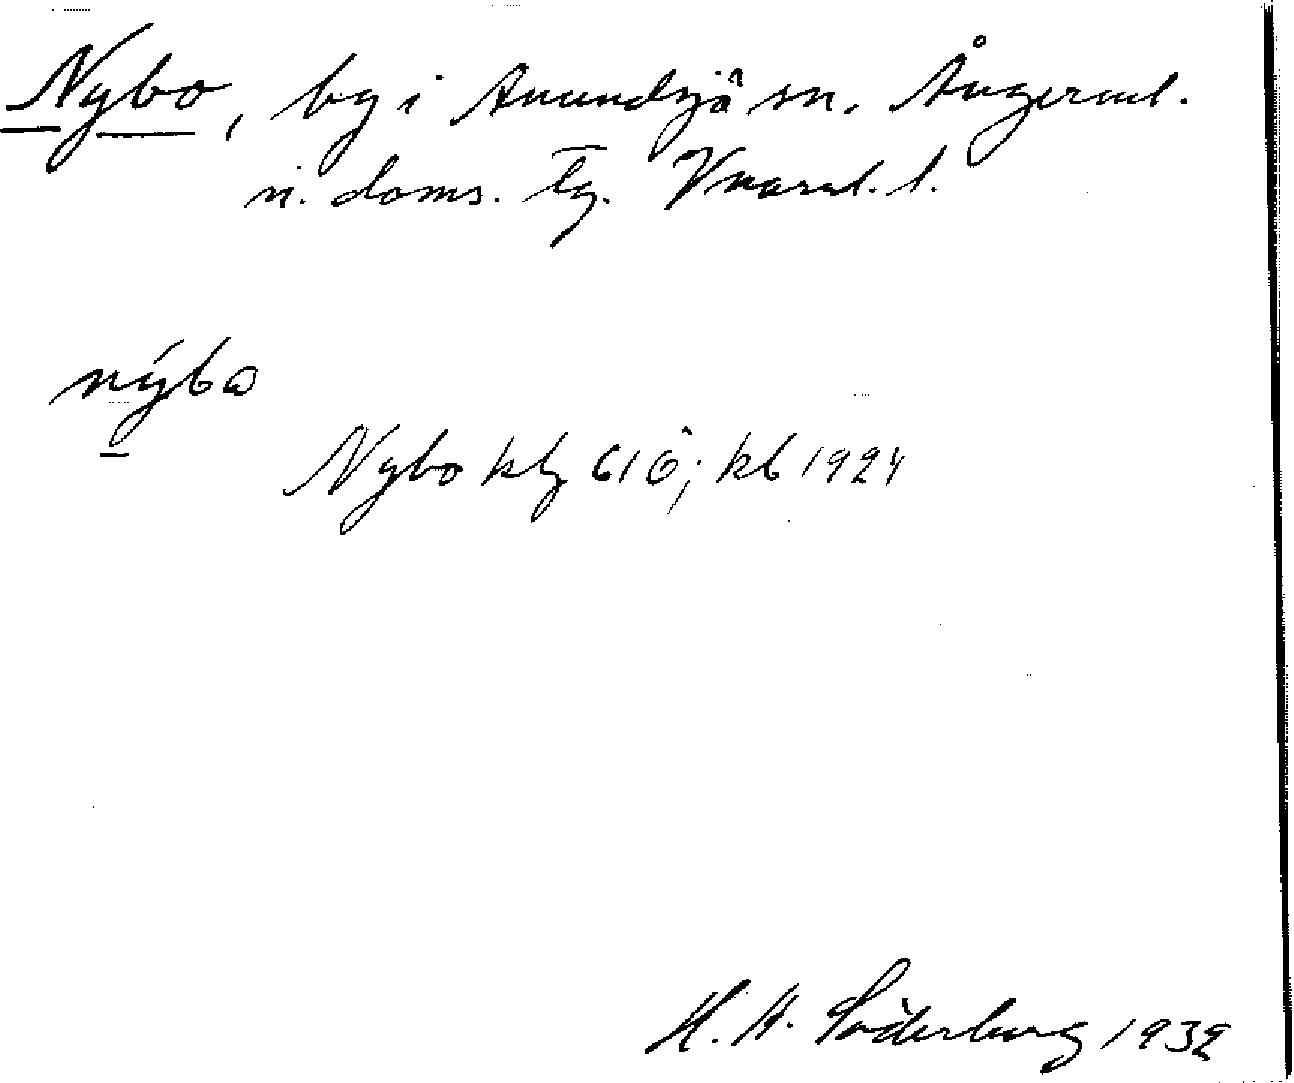 Nybo, by i Anundsjö sn. Ångerml.
n. doms. tg. Vnorrl. l.
nýbo
Nybo kbg 61ö; kb 1924
H. H. Söderberg 1932